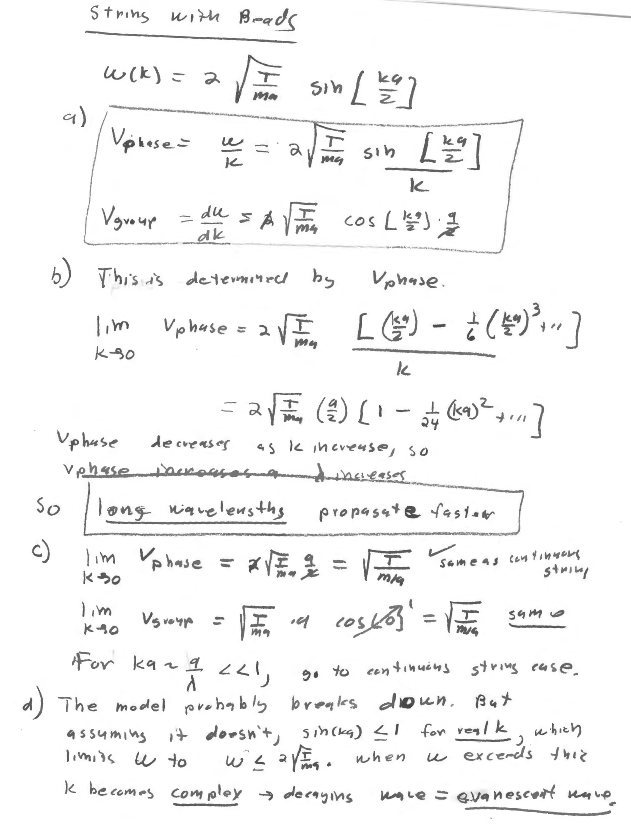 String with Beads
ω(k) = 2 √(T/ma) sin [ka/2]
a)
Vphase = ω/k = 2√(T/ma) sin [ka/2] / k
Vgroup = dω/dk = 2 √(T/ma) cos [ka/2] · a/2
b) This is determined by Vphase.
lim k→0 Vphase = 2 √(T/ma) [(ka/2) - 1/6 (ka/2)³ + ...] / k
= 2 √(T/ma) (a/2) [1 - 1/24 (ka)² + ...]
Vphase decreases as k increase, so
Vphase increases a λ increases
so long wavelengths propagate faster
c) lim k→0 Vphase = 2 √(T/ma) a/2 = √(T/m/a) ✓ same as continuous string
lim k→0 Vgroup = √(T/ma) · a cos[0] 1 = √(T/m/a) same
For ka ~ a/λ <<1, go to continuous string case.
d) The model probably breaks down. But
assuming it doesn't, sin(ka) ≤ 1 for real k, which
limits ω to ω ≤ 2√(T/ma). when ω exceeds this
k becomes complex → decaying wave = evanescent wave.